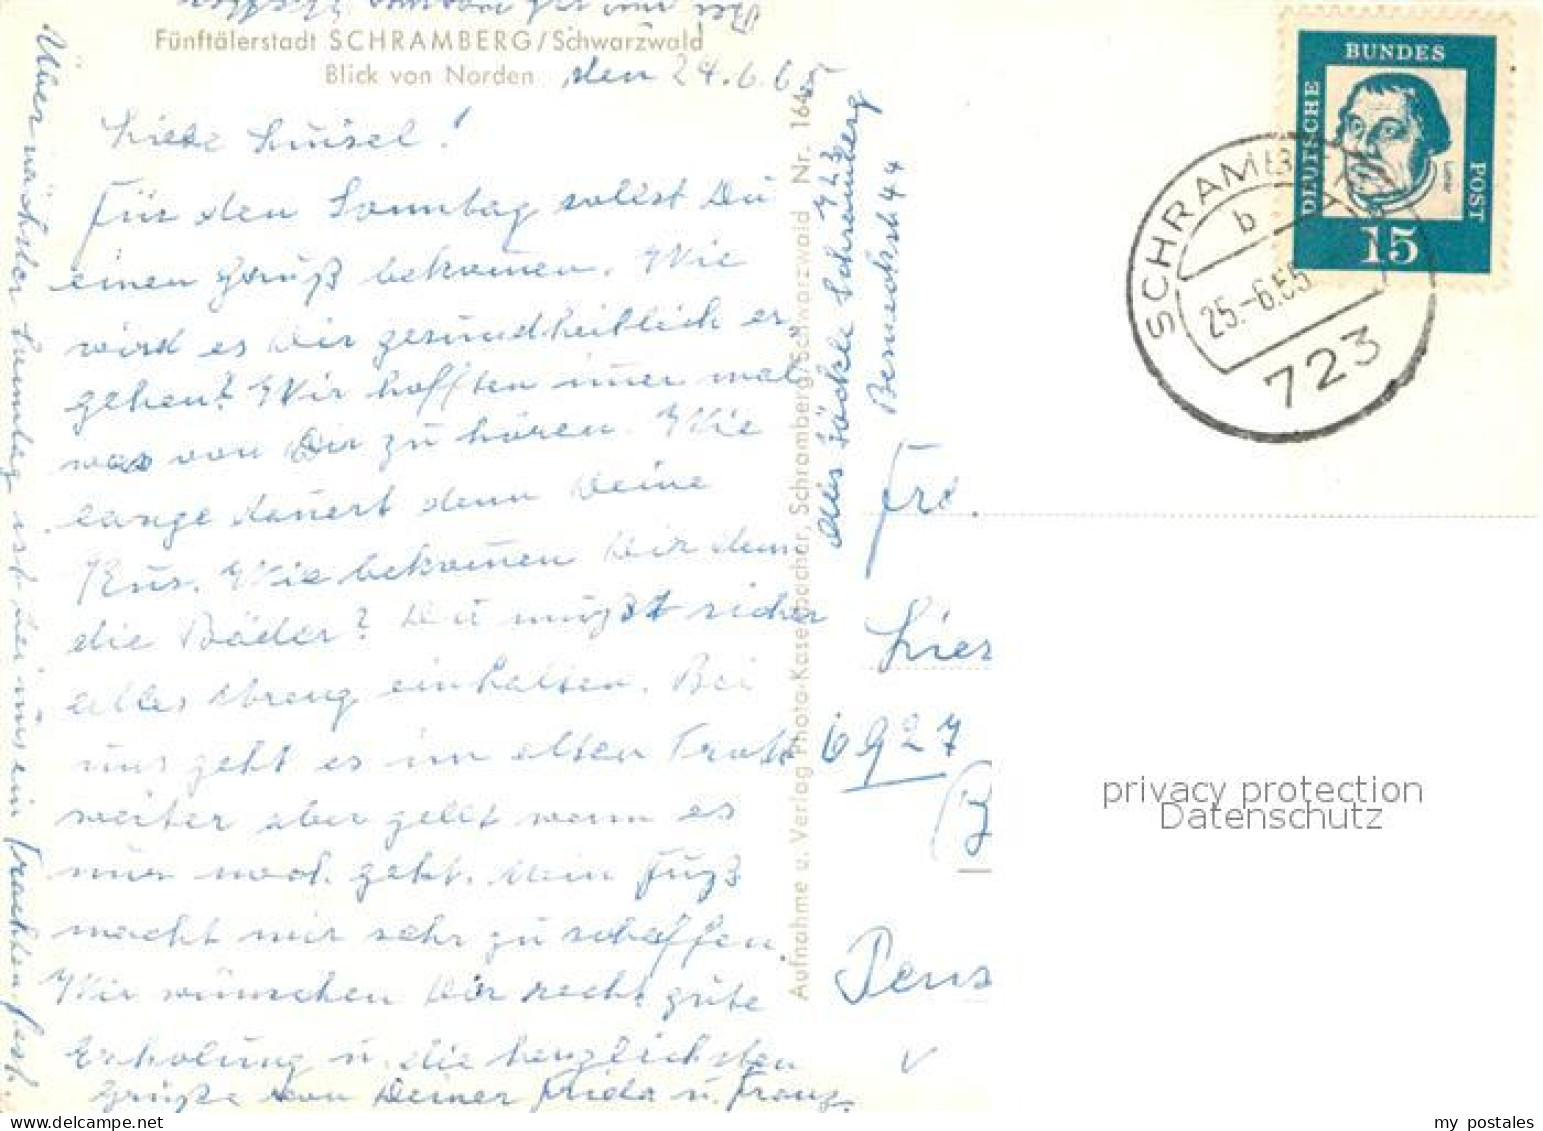 Fünftälerstadt SCHRAMBERG/Schwarzwald
Blick von Norden
den 24.6.65
Liebe Luisel!
Für den Sonntag sollst Du
einen Gruß bekommen. Wie
wird es Dir gesundheitlich er,
gehen? Wir hofften immer mal
was von Dir zu hören. Wie
lange dauert denn Deine
Kur. Wie bekommen Dir denn
die Bäder? Du mußt sicher
alles streng einhalten. Bei
uns geht es im alten Trott
weiter aber gellt wenn es
nur noch geht. Mein Fuß
macht mir sehr zu schaffen.
Wir wünschen Dir recht gute
Erholung u. die herzlichsten
Grüße von Deiner Frida u. Franz.
Über nächster Sonntag ist bei uns ein Trachtenfest.
Aufnahme u. Verlag Photo-Kasenbacher, Schramberg/Schwarzwald Nr. 164
723 Schramberg
Berneckstr 44
Frl.
6927
Pens
DEUTSCHE
BUNDES
POST
15
SCHRAMBERG
b
25.-6.65
723
privacy protection
Datenschutz
my postales